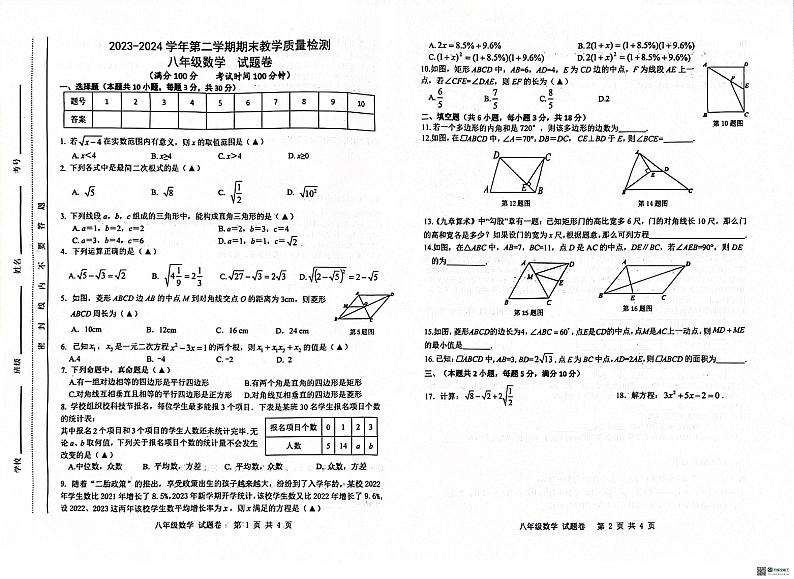 2023-2024 学年第二学期期末教学质量检测
八年级数学 试题卷
(满分 100 分 考试时间 100 分钟)
一、选择题（本题共 10 小题，每题 3 分，共 30 分）
题号 1 2 3 4 5 6 7 8 9 10
答案
1. 若√x-4在实数范围内有意义，则 x 的取值范围是（▲）
A. x<4 B. x≥4 C. x>4 D. x≥0
2. 下列各式中是最简二次根式的是（▲）
A. √5 B. √8 C. √(1/2) D. √10²
3. 下列线段 a，b，c 组成的三角形中，能构成直角三角形的是（▲）
A. a=1，b=2，c=2 B. a=2，b=3，c=4
C. a=3，b=4，c=6 D. a=1，b=1，c=√2
4. 下列运算正确的是（▲）
A.√5-√3=√2 B. √(4 1/9)=2 1/3 C.√27-√3=2√3 D.√(2-√5)²=2-√5
5. 如图，菱形 ABCD 边 AB 的中点 M 到对角线交点 O 的距离为 3cm，则菱形
ABCD 周长为（▲）
A. 10cm B. 12cm C. 16 cm D. 24 cm
第5题图
6. 已知 x₁，x₂是一元二次方程 x²-3x=1 的两个根，则 x₁+x₁x₂+x₂ 的值是（▲）
A.4 B. -4 C. -2 D. 2
7. 下列命题中，真命题是（▲）
A.有一组对边相等的四边形是平行四边形 B.有两个角是直角的四边形是矩形
C.对角线互相垂直且相等的平行四边形是正方形 D.对角线互相垂直的四边形是菱形
8. 学校组织校科技节报名，每位学生最多能报 3 个项目. 下表是某班 30 名学生报名项目个数
的统计表：
其中报名 2 个项目和 3 个项目的学生人数还未统计完毕. 无
论 a、b 取何值，下列关于报名项目个数的统计量不会发生
改变的是（▲）
报名项目个数 0 1 2 3
人数 5 14 a b
A.中位数，众数 B. 平均数，方差 C. 平均数，众数 D. 众数，方差
9. 随着“二胎政策”的推出，享受政策出生的孩子越来越大，纷纷到了入学年龄，某校 2022
年学生数比 2021 年增长了 8.5%，2023 年新学期开学统计，该校学生数又比 2022 年增长了 9.6%，
设 2022、2023 这两年该校学生数平均增长率为 x，则 x 满足的方程是（▲）
八年级数学 试题卷 第 1 页 共 4 页
学校
班级
姓名
考号
密 封 线 内 不 要 答 题
A. 2x = 8.5% + 9.6% B. 2(1 + x) = (1 + 8.5%)(1 + 9.6%)
C.(1 + x)² = (1 + 8.5%)(1 + 9.6%) D.2(1 + x)² = (1 + 8.5%)(1 + 9.6%)
10.如图，矩形 ABCD 中，AB=6，AD=4，E 为 CD 边的中点，F 为线段 AE 上一
点，若∠CFE=∠DAE，则 EF 的长为（▲）
A.6/5 B.7/5 C.8/5 D.2
第 10 题图
二、填空题（共 6 小题，每小题 3 分，共 18 分）
11.若一个多边形的内角和是720°，则该多边形的边数为______.
12.如图，在□ABCD 中，∠A=70°，DB=DC，CE⊥BD 于 E，则∠BCE=______.
第12题图
第 14 题图
13.《九章算术》中“勾股”章有一题：已知矩形门的高比宽多 6 尺，门的对角线长 10 尺，那么门
的高和宽各是多少？如果设门的宽为 x 尺，根据题意，那么可列方程______
14.如图，在△ABC 中，AB=7，BC=11，点 D 是 AC 的中点，DE∥BC，若∠AEB=90°，则 DE
的为______.
第 15 题图
第 16 题图
15.如图，菱形ABCD的边长为4，∠ABC=60°，点E是CD的中点，点M是AC上一动点，则MD+ME
的最小值是______.
16. 已知：□ABCD 中，AB=3，BD=2√13，点 E 为 BC 中点，AD=2AE，则□ABCD 的面积为______.
三、（本题共 2 小题，每题 5 分，满分 10 分）
17. 计算：√8-√2+2√(1/2) 18. 解方程：3x²+5x-2=0.
八年级数学 试题卷 第 2 页 共 4 页